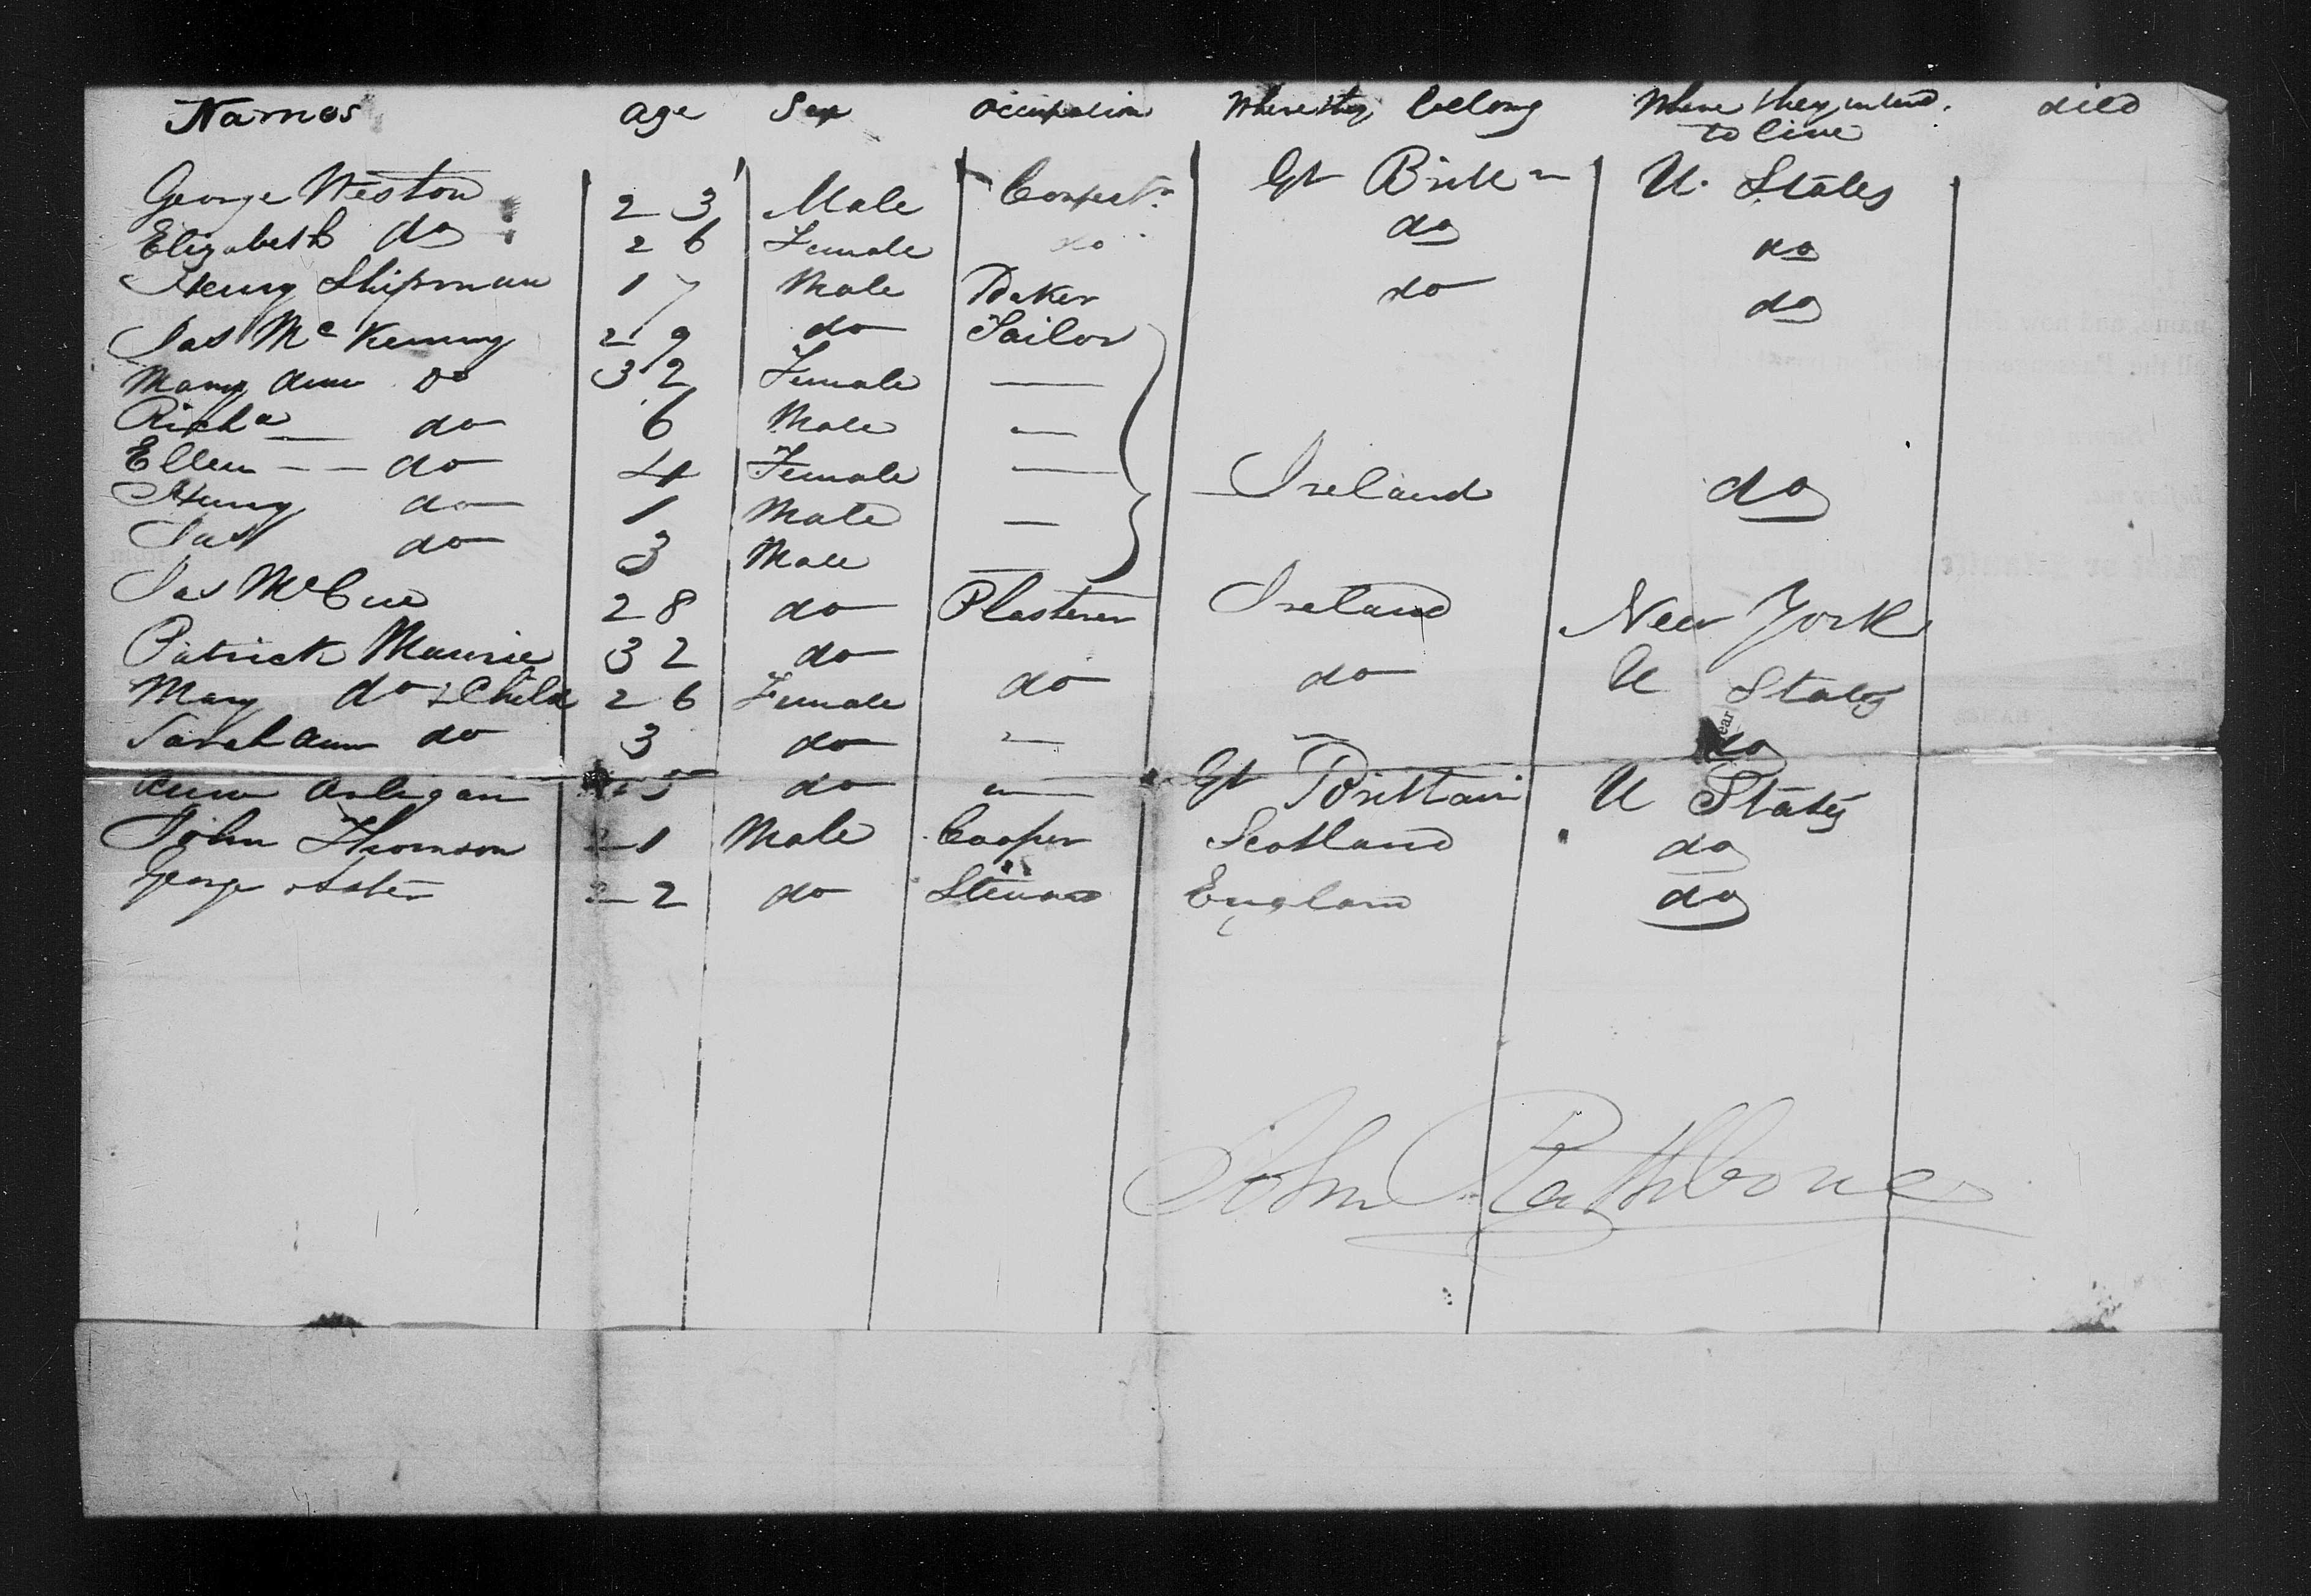 Names age Sex occupation Where they belong Where they intend to live died
George Weston 23 Male Confectr Gt Brittn U. States
Elizabeth do 26 Female do do do
Henry Shipman 17 Male Baker do do
Jas Mc Kenny 29 do Tailor
Mary Ann Do 32 Female —
Richd — do 6 Male —
Ellen — — do 4 Female — Ireland do
Henry do 1 Male —
Jas do 3 Male —
Jas McCue 28 do Plasterer Ireland New York
Patrick 32 do
Mary do & Child 26 Female do do U States
Sarah Ann do 3 do — — do
Ann 5 do — Gt Brittain U States
John Thomson 21 Male Cooper Scotland do
George 22 do Steward England do
John Rathbone